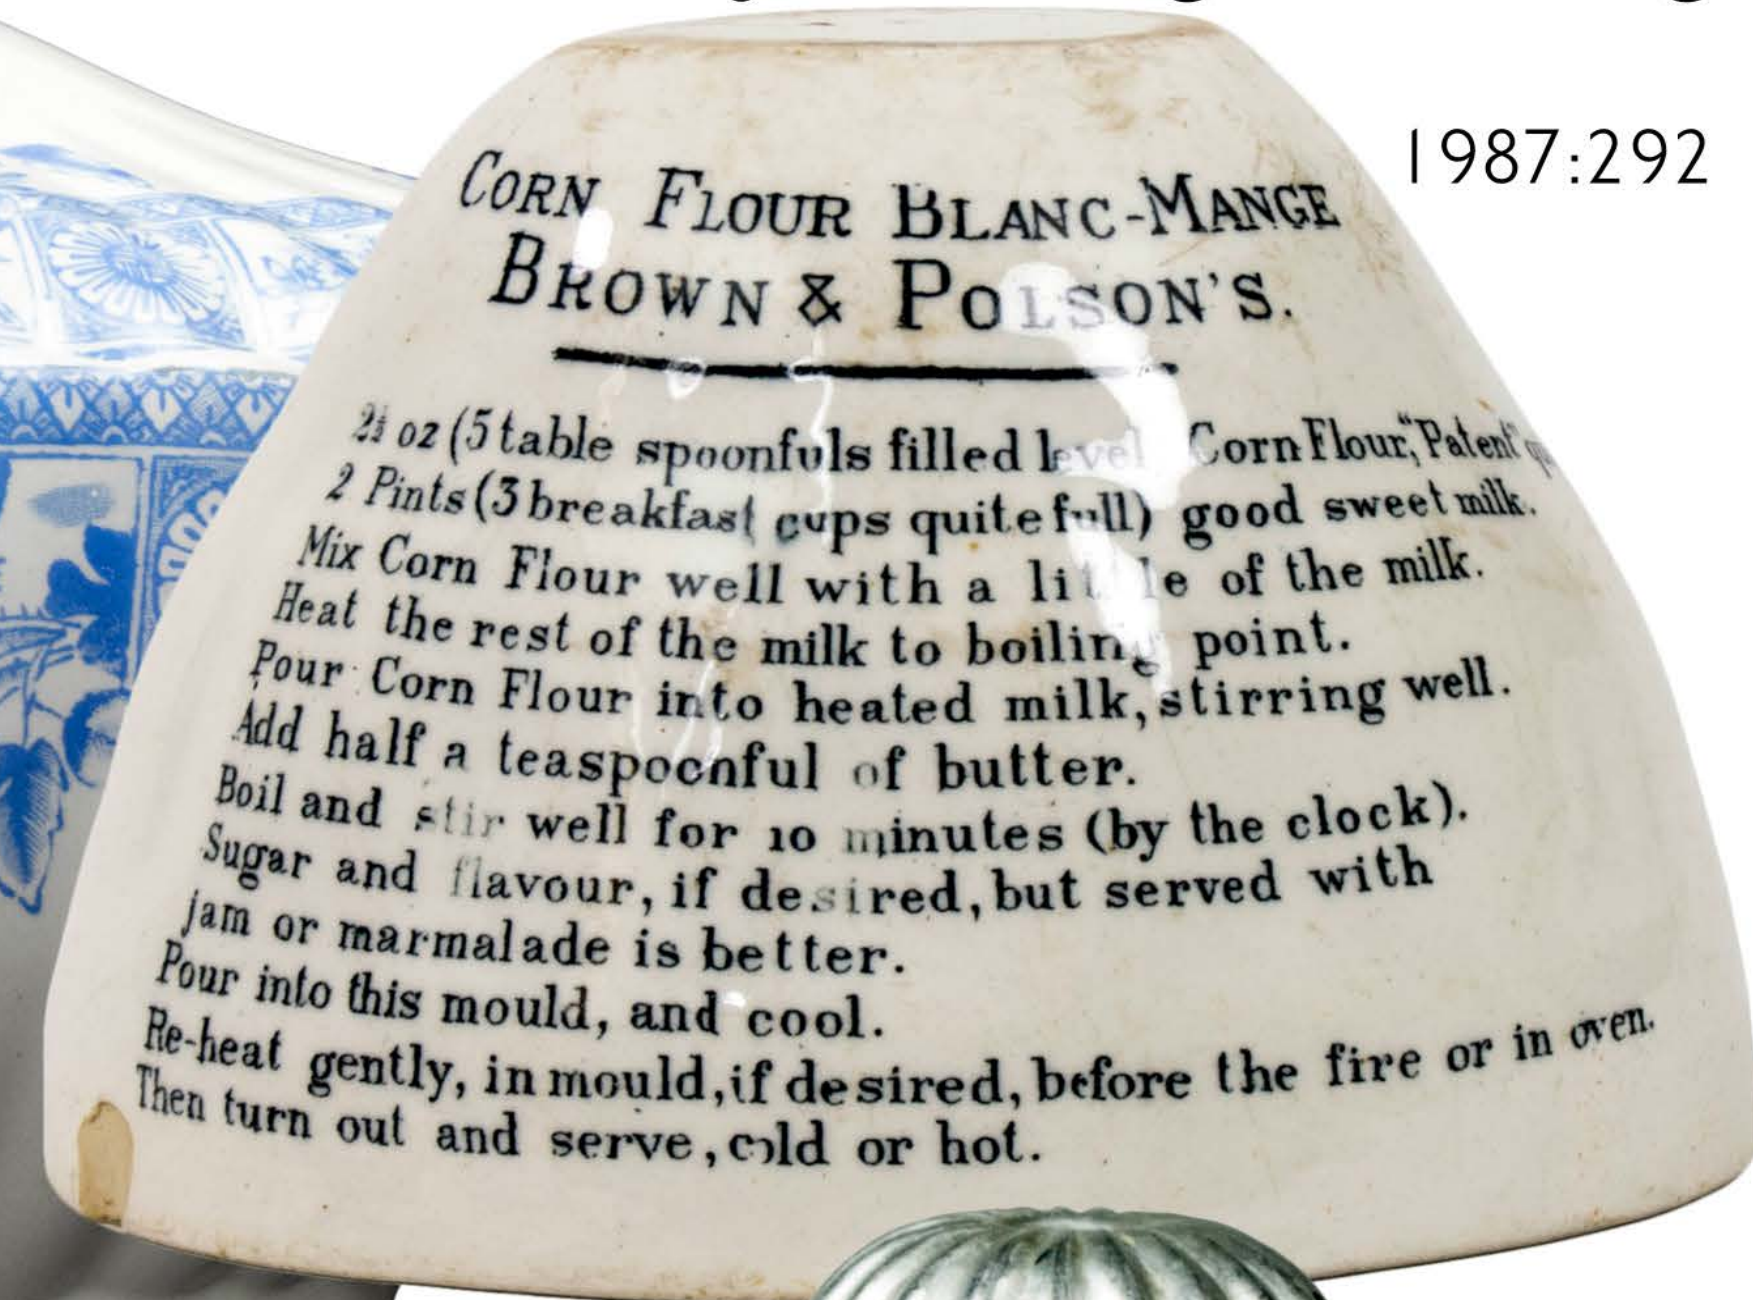 1987:292
CORN FLOUR BLANC-MANGE
BROWN & POLSON'S.
oz (5 table spoonfuls filled level Corn Flour, "Patent"
2 Pints (3 breakfast cups quite full) good sweet milk.
Mix Corn Flour well with a little of the milk.
Heat the rest of the milk to boiling point.
Pour Corn Flour into heated milk, stirring well.
Add half a teaspoonful of butter.
Boil and stir well for 10 minutes (by the clock).
Sugar and flavour, if desired, but served with
jam or marmalade is better.
Pour into this mould, and cool.
Re-heat gently, in mould, if desired, before the fire or in oven.
Then turn out and serve, cold or hot.